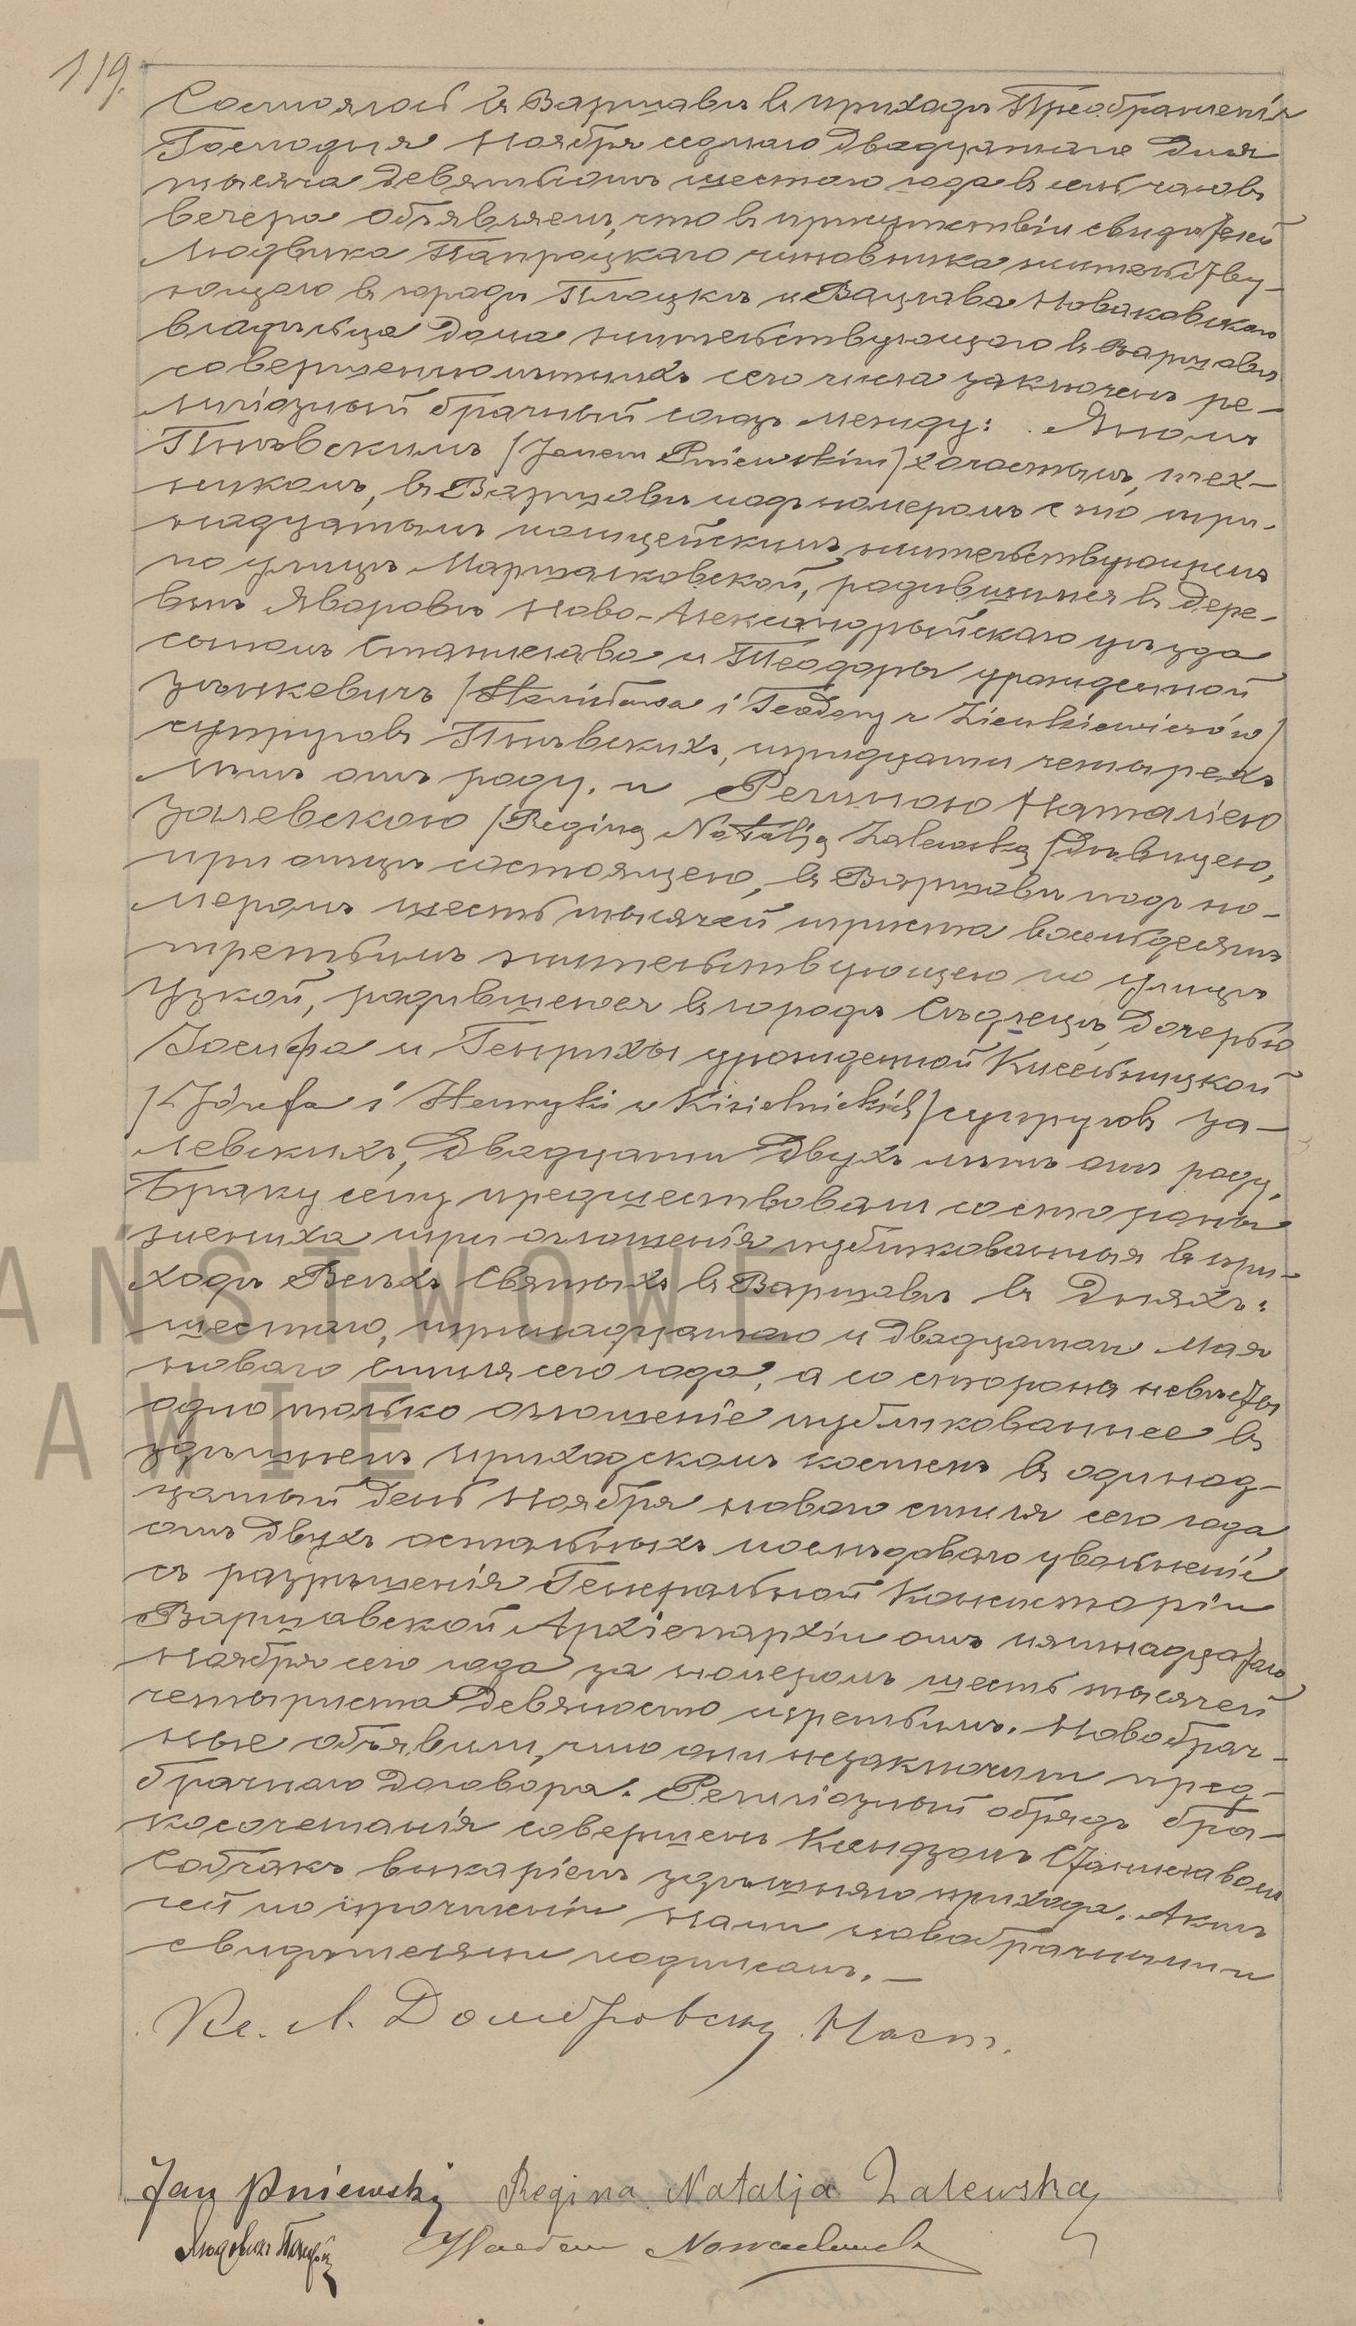 119.
Состоялось въ Варшавѣ въ приходѣ Преображенія
Господня Ноября седмаго двадцатаго дня
тысяча девятьсотъ шестого года въ семь часовъ
вечера. Объявляемъ, что въ присутствіи свидѣтелей
Людвика Папроцкаго чиновника жительству-
ющаго въ городѣ Плоцкѣ и Вацлава Новаковскаго
владѣльца дома жительствующаго въ Варшавѣ
совершеннолѣтнихъ сего числа заключенъ ре-
лигіозный брачный союзъ между: Яномъ
Пнѣвскимъ /Janem Pniewskim/ холостымъ, тех-
никомъ, въ Варшавѣ подъ номеромъ сто три-
надцатымъ полицейскимъ жительствующимъ
по улицѣ Маршалковской, родившимся въ дере-
внѣ Яворовъ Ново-Александрыйскаго уѣзда
сыномъ Станислава и Теодоры урожденной
Зѣнкевичъ /Stanisława i Teodory z Zienkiewiczów/
супруговъ Пнѣвскихъ, тридцати четырехъ
лѣтъ отъ роду. и Региною Наталіею
Залевскою /Reginą Natalją Zalewską/ дѣвицею,
при отцѣ состоящею, въ Варшавѣ подъ но-
меромъ шесть тысячей триста восемьдесятъ
третьимъ жительствующею по улицѣ
Узкой, родившеюся въ городѣ Сѣдлецѣ, дочерью
Іосифа и Генрихи урожденной Кисельницкой
/Józefa i Henryki z Kisielnickich/ супруговъ За-
левскихъ, двадцати двухъ лѣтъ отъ роду.
Браку сему предшествовали со стороны
жениха три оглашенія публикованныя въ при-
ходѣ Всѣхъ Святыхъ въ Варшавѣ въ дняхъ:
шестаго, тринадцатаго и двадцатаго Мая
новаго стиля сего года, а со стороны невѣсты
одно только оглашеніе публикованное въ
здѣшнемъ приходскомъ костелѣ въ одинад-
цатый день Ноября новаго стиля сего года,
отъ двухъ остальныхъ послѣдовало увольненіе
съ разрѣшенія Генеральной Консисторіи
Варшавской Архіепархіи отъ пятнадцатаго
Ноября сего года за номеромъ шесть тысячей
четыриста девяносто третьимъ. Новобрач-
ные объявили, что они незаключили пред-
брачнаго договора. Религіозный обрядъ бра-
косочетанія совершенъ Ксендзомъ Станиславомъ
Собчакъ викаріемъ здѣшняго прихода. Актъ
сей по прочтеніи нами новобрачными и
свидѣтелями подписанъ. —
Кс. Л. Домбровскій Наст.
Jan Pniewski Regina Natalja Zalewska
Людовикъ Wacław Nowakowski